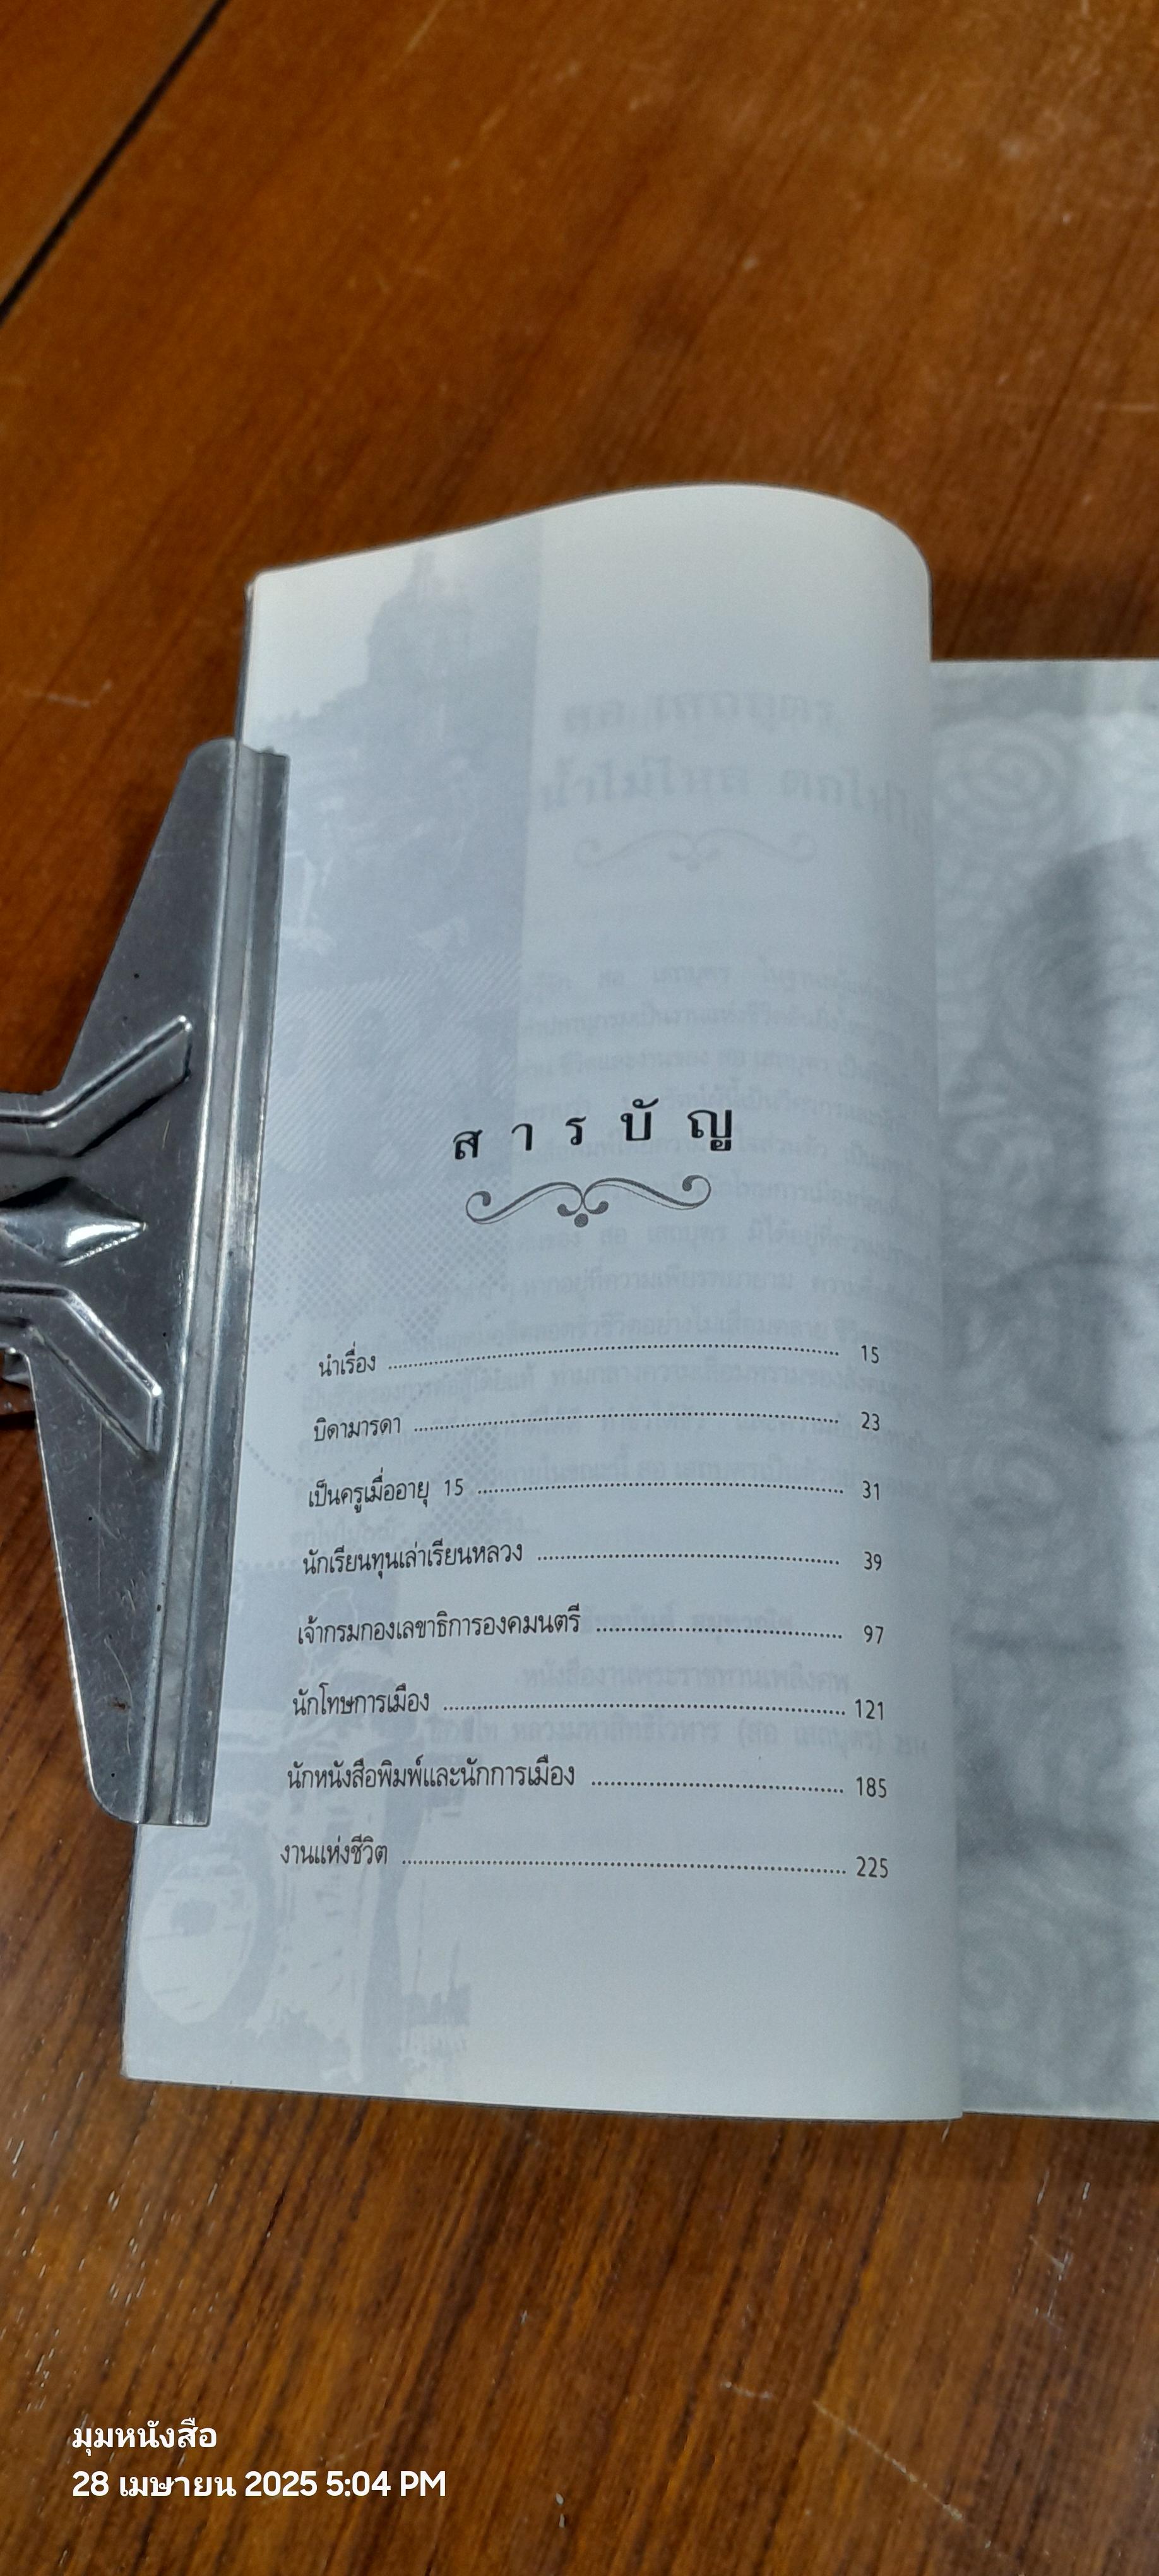 สารบัญ
นำเรื่อง 15
บิดามารดา 23
เป็นครูเมื่ออายุ 15 31
นักเรียนทุนเล่าเรียนหลวง 39
เจ้ากรมกองเลขาธิการองคมนตรี 97
นักโทษการเมือง 121
นักหนังสือพิมพ์และนักการเมือง 185
งานแห่งชีวิต 225
มุมหนังสือ
28 เมษายน 2025 5:04 PM